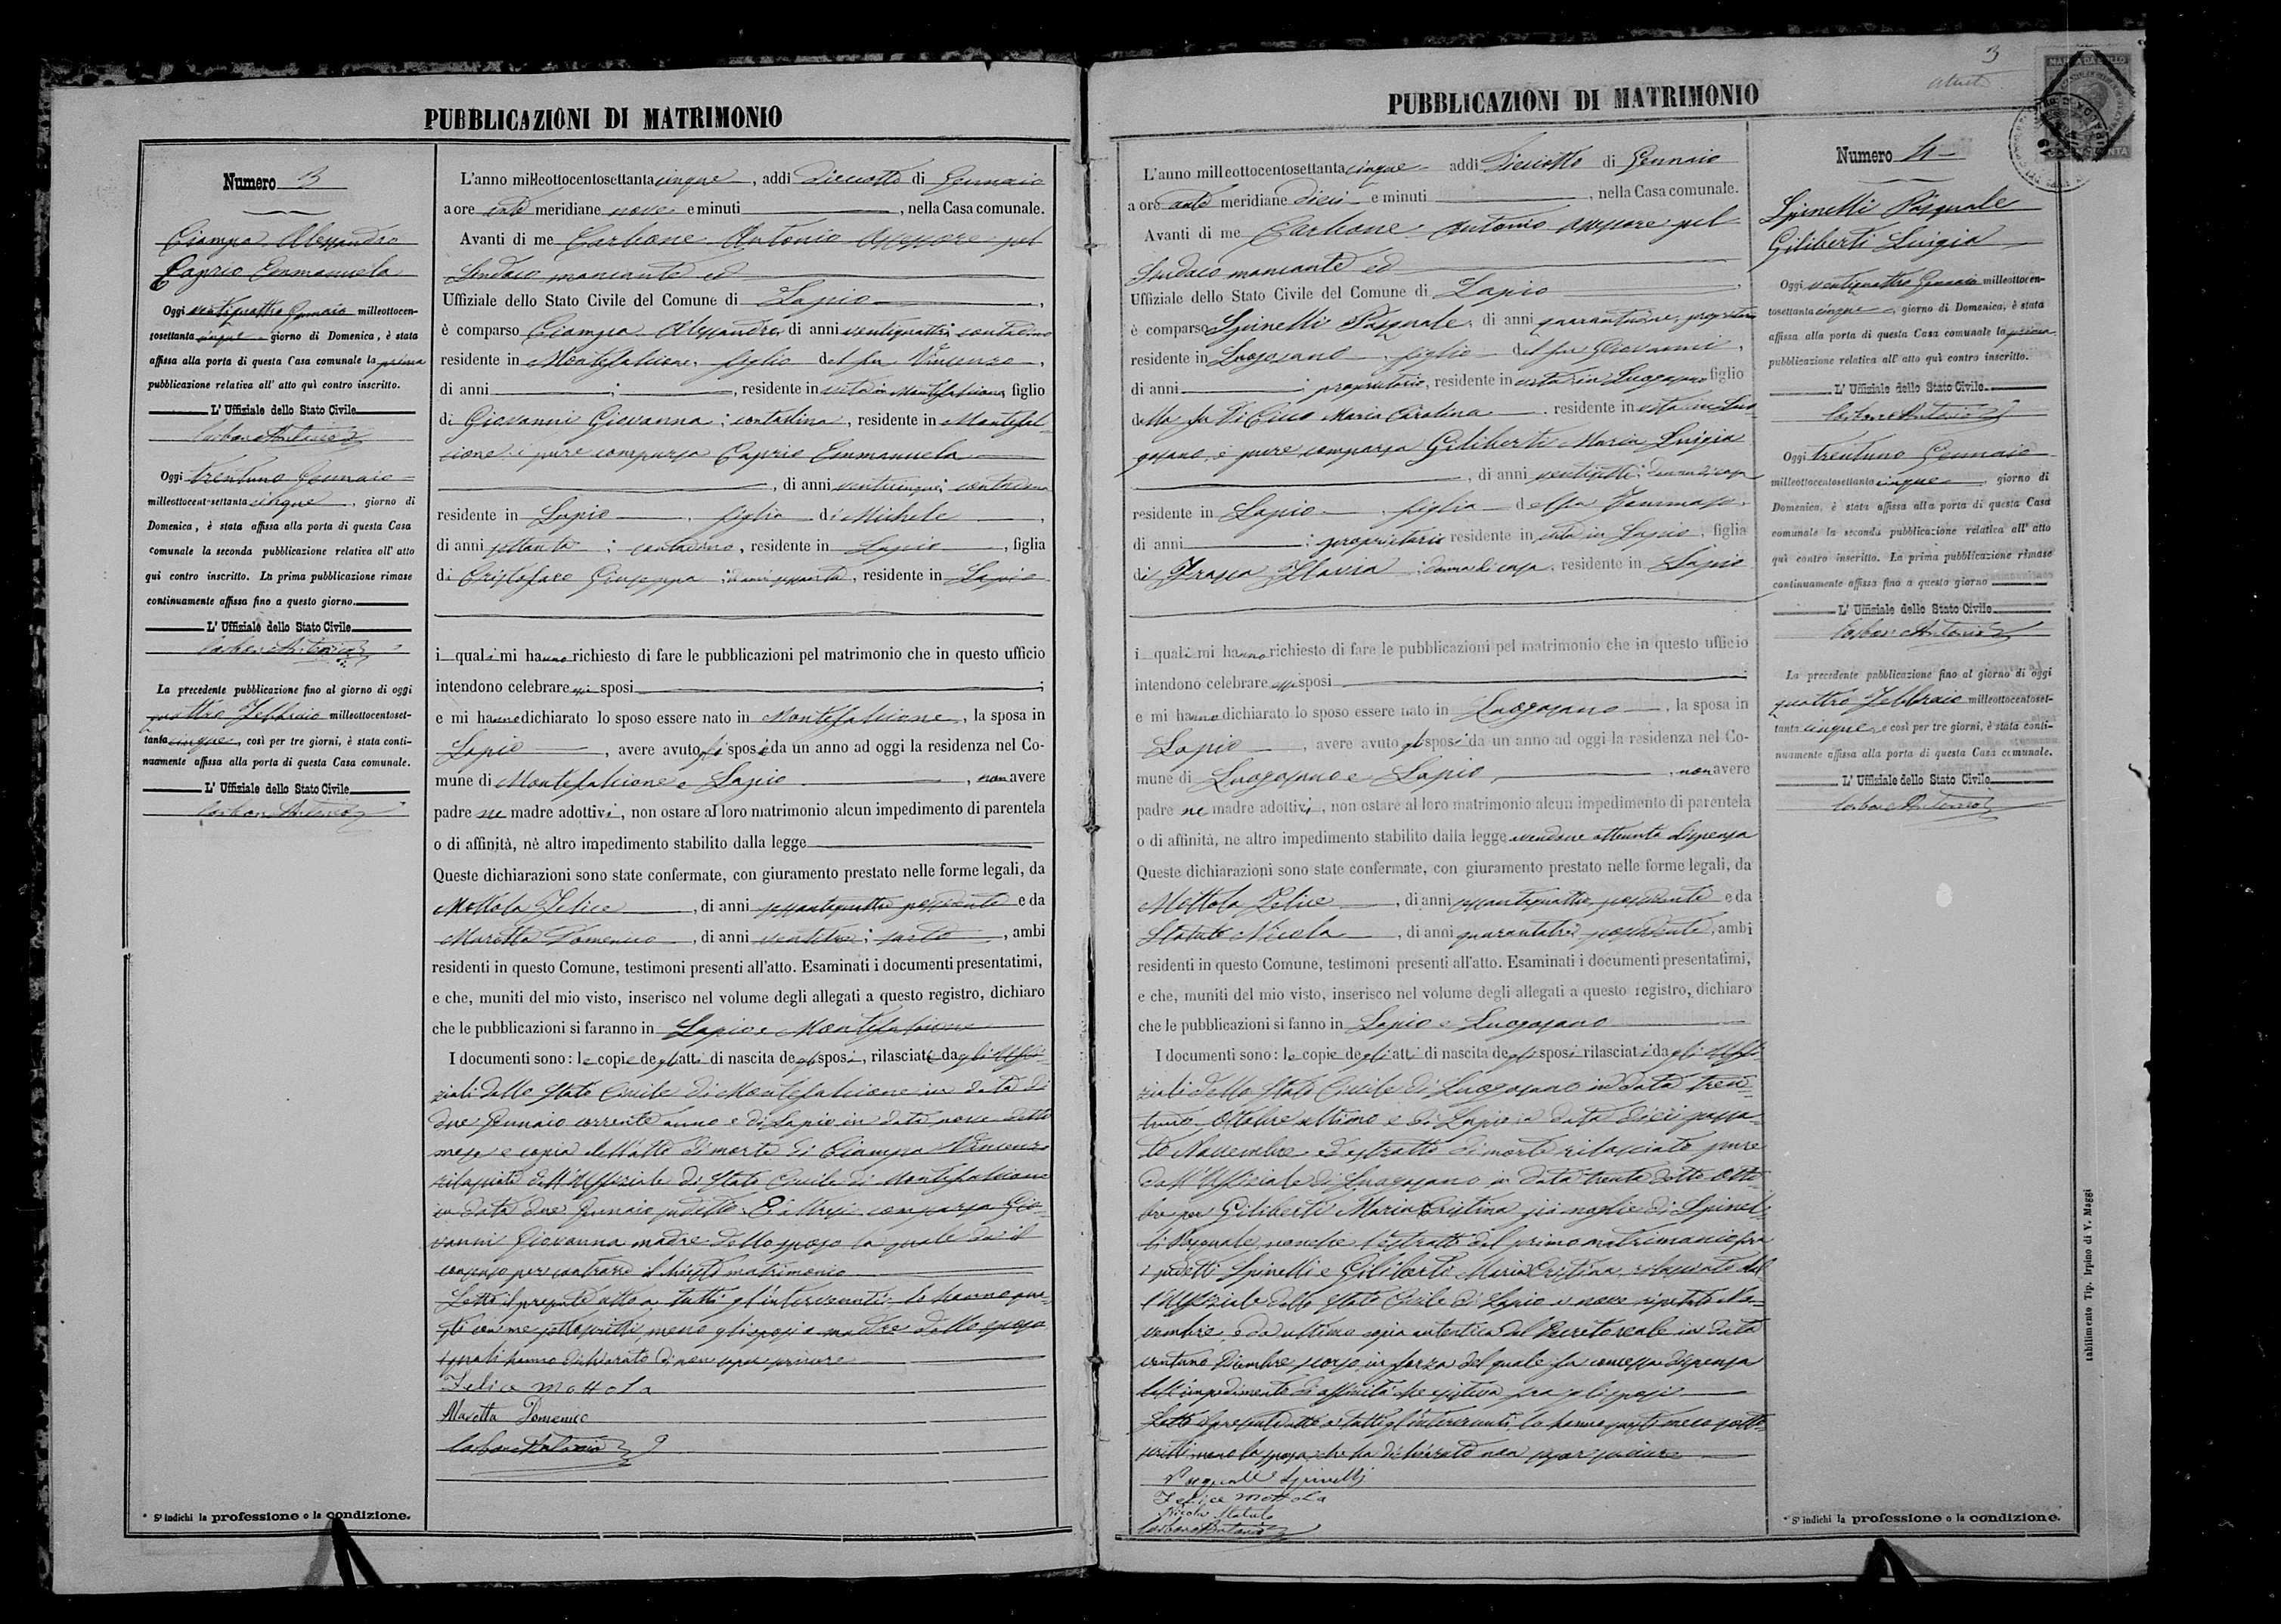 PUBBLICAZIONI DI MATRIMONIO
Numero 3
Ciampa Alessandro
Caprio Emmanuela
Oggi ventiquattro Gennaio milleottocen-
tosettanta cinque giorno di Domenica, è stata
affissa alla porta di questa Casa comunale la prima
pubblicazione relativa all' atto quì contro inscritto.
L' Uffiziale dello Stato Civile
Carbone Antonio
Oggi trentuno Gennaio
milleottocent-settanta cinque, giorno di
Domenica, è stata affissa alla porta di questa Casa
comunale la seconda pubblicazione relativa all' atto
quì contro inscritto. La prima pubblicazione rimase
continuamente affissa fino a questo giorno.
L' Uffiziale dello Stato Civile
Carbone Antonio
La precedente pubblicazione fino al giorno di oggi
quattro Febbraio milleottocentoset-
tanta cinque, così per tre giorni, è stata conti-
nuamente affissa alla porta di questa Casa comunale.
L' Uffiziale dello Stato Civile
Carbone Antonio
* S' indichi la professione o la condizione.
L'anno milleottocentosettanta cinque, addi Dieciotto di Gennaio
a ore ante meridiane nove e minuti , nella Casa comunale.
Avanti di me Carbone Antonio Assessore pel
Sindaco mancante ed
Uffiziale dello Stato Civile del Comune di Lapio,
è comparso Ciampa Alessandro, di anni ventiquattro; contadino
residente in Montefalcione, figlio del fu Vincenzo,
di anni ; , residente in vita in Montefalcione, figlio
di Giovanni Giovanna; contadina, residente in Montefal-
cione: è pure comparsa Caprio Emmanuela
, di anni venticinque; contadina
residente in Lapio, figlia di Michele,
di anni settanta; contadino, residente in Lapio, figlia
di Cristofaro Giuseppa; di anni sessanta, residente in Lapio
i quali mi hanno richiesto di fare le pubblicazioni pel matrimonio che in questo ufficio
intendono celebrare essi sposi ;
e mi hanno dichiarato lo sposo essere nato in Montefalcione, la sposa in
Lapio, avere avuto gli sposi da un anno ad oggi la residenza nel Co-
mune di Montefalcione e Lapio, non avere
padre ne madre adottivi, non ostare al loro matrimonio alcun impedimento di parentela
o di affinità, nè altro impedimento stabilito dalla legge
Queste dichiarazioni sono state confermate, con giuramento prestato nelle forme legali, da
Mottola Felice, di anni sessantaquattro possidente e da
Marotta Domenico, di anni ventitre; sarto, ambi
residenti in questo Comune, testimoni presenti all'atto. Esaminati i documenti presentatimi,
e che, muniti del mio visto, inserisco nel volume degli allegati a questo registro, dichiaro
che le pubblicazioni si faranno in Lapio e Montefalcione
I documenti sono: le copie degli atti di nascita degli sposi, rilasciate dagli Uffi-
ziali dello Stato Civile di Montefalcione in data di
due Gennaio corrente anno e di Lapio in data nove detto
mese e copia dell'atto di morte di Ciampa Vincenzo
rilasciato dall'Uffiziale di Stato Civile di Montefalcione
in data due Gennaio sudetto. È altresì comparsa Gio-
vanni Giovanna madre dello sposo la quale dà il
consenso per contrarre il chiesto matrimonio
Letto il presente atto a tutti gl'intervenuti lo hanno que-
sti con me sottoscritti, meno gli sposi e madre dello sposo
i quali hanno dichiarato di non saper scrivere
Felice Mottola
Marotta Domenico
Carbone Antonio
PUBBLICAZIONI DI MATRIMONIO
3
L'anno milleottocentosettanta cinque addi Dieciotto di Gennaio
a ore ante meridiane dieci e minuti , nella Casa comunale.
Avanti di me Carbone Antonio Assessore pel
Sindaco mancante ed
Uffiziale dello Stato Civile del Comune di Lapio,
è comparso Spinelli Pasquale, di anni quarantuno, proprietario
residente in Luogosano, figlio del fu Giovanni,
di anni ; proprietario, residente in vita in Luogosano figlio
della fu Di Cicco Maria Carolina, residente in vita in Luo-
gosano, è pure comparsa Giliberti Maria Luigia
, di anni ventisette; donna di casa
residente in Lapio, figlia del fu Tommaso,
di anni ; proprietario residente in vita in Lapio, figlia
di Frasca Flavia; donna di casa, residente in Lapio
i quali mi hanno richiesto di fare le pubblicazioni pel matrimonio che in questo ufficio
intendono celebrare essi sposi ;
e mi hanno dichiarato lo sposo essere nato in Luogosano, la sposa in
Lapio, avere avuto gli sposi da un anno ad oggi la residenza nel Co-
mune di Luogosano e Lapio, non avere
padre ne madre adottivi, non ostare al loro matrimonio alcun impedimento di parentela
o di affinità, ne altro impedimento stabilito dalla legge avendone ottenuta dispensa
Queste dichiarazioni sono state confermate, con giuramento prestato nelle forme legali, da
Mottola Felice, di anni sessantaquattro possidente e da
Statuto Nicola, di anni quarantatre possidente, ambi
residenti in questo Comune, testimoni presenti all'atto. Esaminati i documenti presentatimi,
e che, muniti del mio visto, inserisco nel volume degli allegati a questo registro, dichiaro
che le pubblicazioni si fanno in Lapio e Luogosano
I documenti sono: le copie degli atti di nascita degli sposi rilasciati dagli Uffi-
ziali dello Stato Civile di Luogosano in data tren-
tuno Ottobre ultimo e di Lapio in data dieci passa-
to Novembre ed estratto di morte rilasciato pure
dall'Uffiziale di Luogosano in data trenta detto Otto-
bre per Giliberti Maria Cristina già moglie di Spinel-
li Pasquale, nonche l'estratto del primo matrimonio fra
i predetti Spinelli e Giliberti Maria Cristina, rilasciato dal-
l'Uffiziale dello Stato Civile di Lapio a nove ripetuto No-
vembre, e da ultimo copia autentica del Decreto reale in data
ventuno Dicembre scorso, in forza del quale fu concessa dispensa
dell'impedimento di affinità che esisteva fra gli sposi
Letto il presente atto a tutti gl'intervenuti, lo hanno questi meco sotto-
scritto meno la sposa, che ha dichiarato non saper scrivere
Pasquale Spinelli
Felice Mottola
Nicola Statuto
Carbone Antonio
Numero 4
Spinelli Pasquale
Giliberti Luigia
Oggi ventiquattro Gennaio milleottocen-
tosettanta cinque, giorno di Domenica, è stata
affissa alla porta di questa Casa comunale la prima
pubblicazione relativa all' atto quì contro inscritto.
L' Uffiziale dello Stato Civile
Carbone Antonio
Oggi trentuno Gennaio
milleottocentosettanta cinque, giorno di
Domenica, è stata affissa alla porta di questa Casa
comunale la seconda pubblicazione relativa all' atto
quì contro inscritto. La prima pubblicazione rimase
continuamente affissa fino a questo giorno
L' Uffiziale dello Stato Civile
Carbone Antonio
La precedente pubblicazione fino al giorno di oggi
quattro Febbraio milleottocentoset-
tanta cinque, e così per tre giorni, è stata conti-
nuamente affissa alla porta di questa Casa comunale.
L' Uffiziale dello Stato Civile
Carbone Antonio
* S' indichi la professione o la condizione.
tabilimento Tip. Irpino di V. Maggi